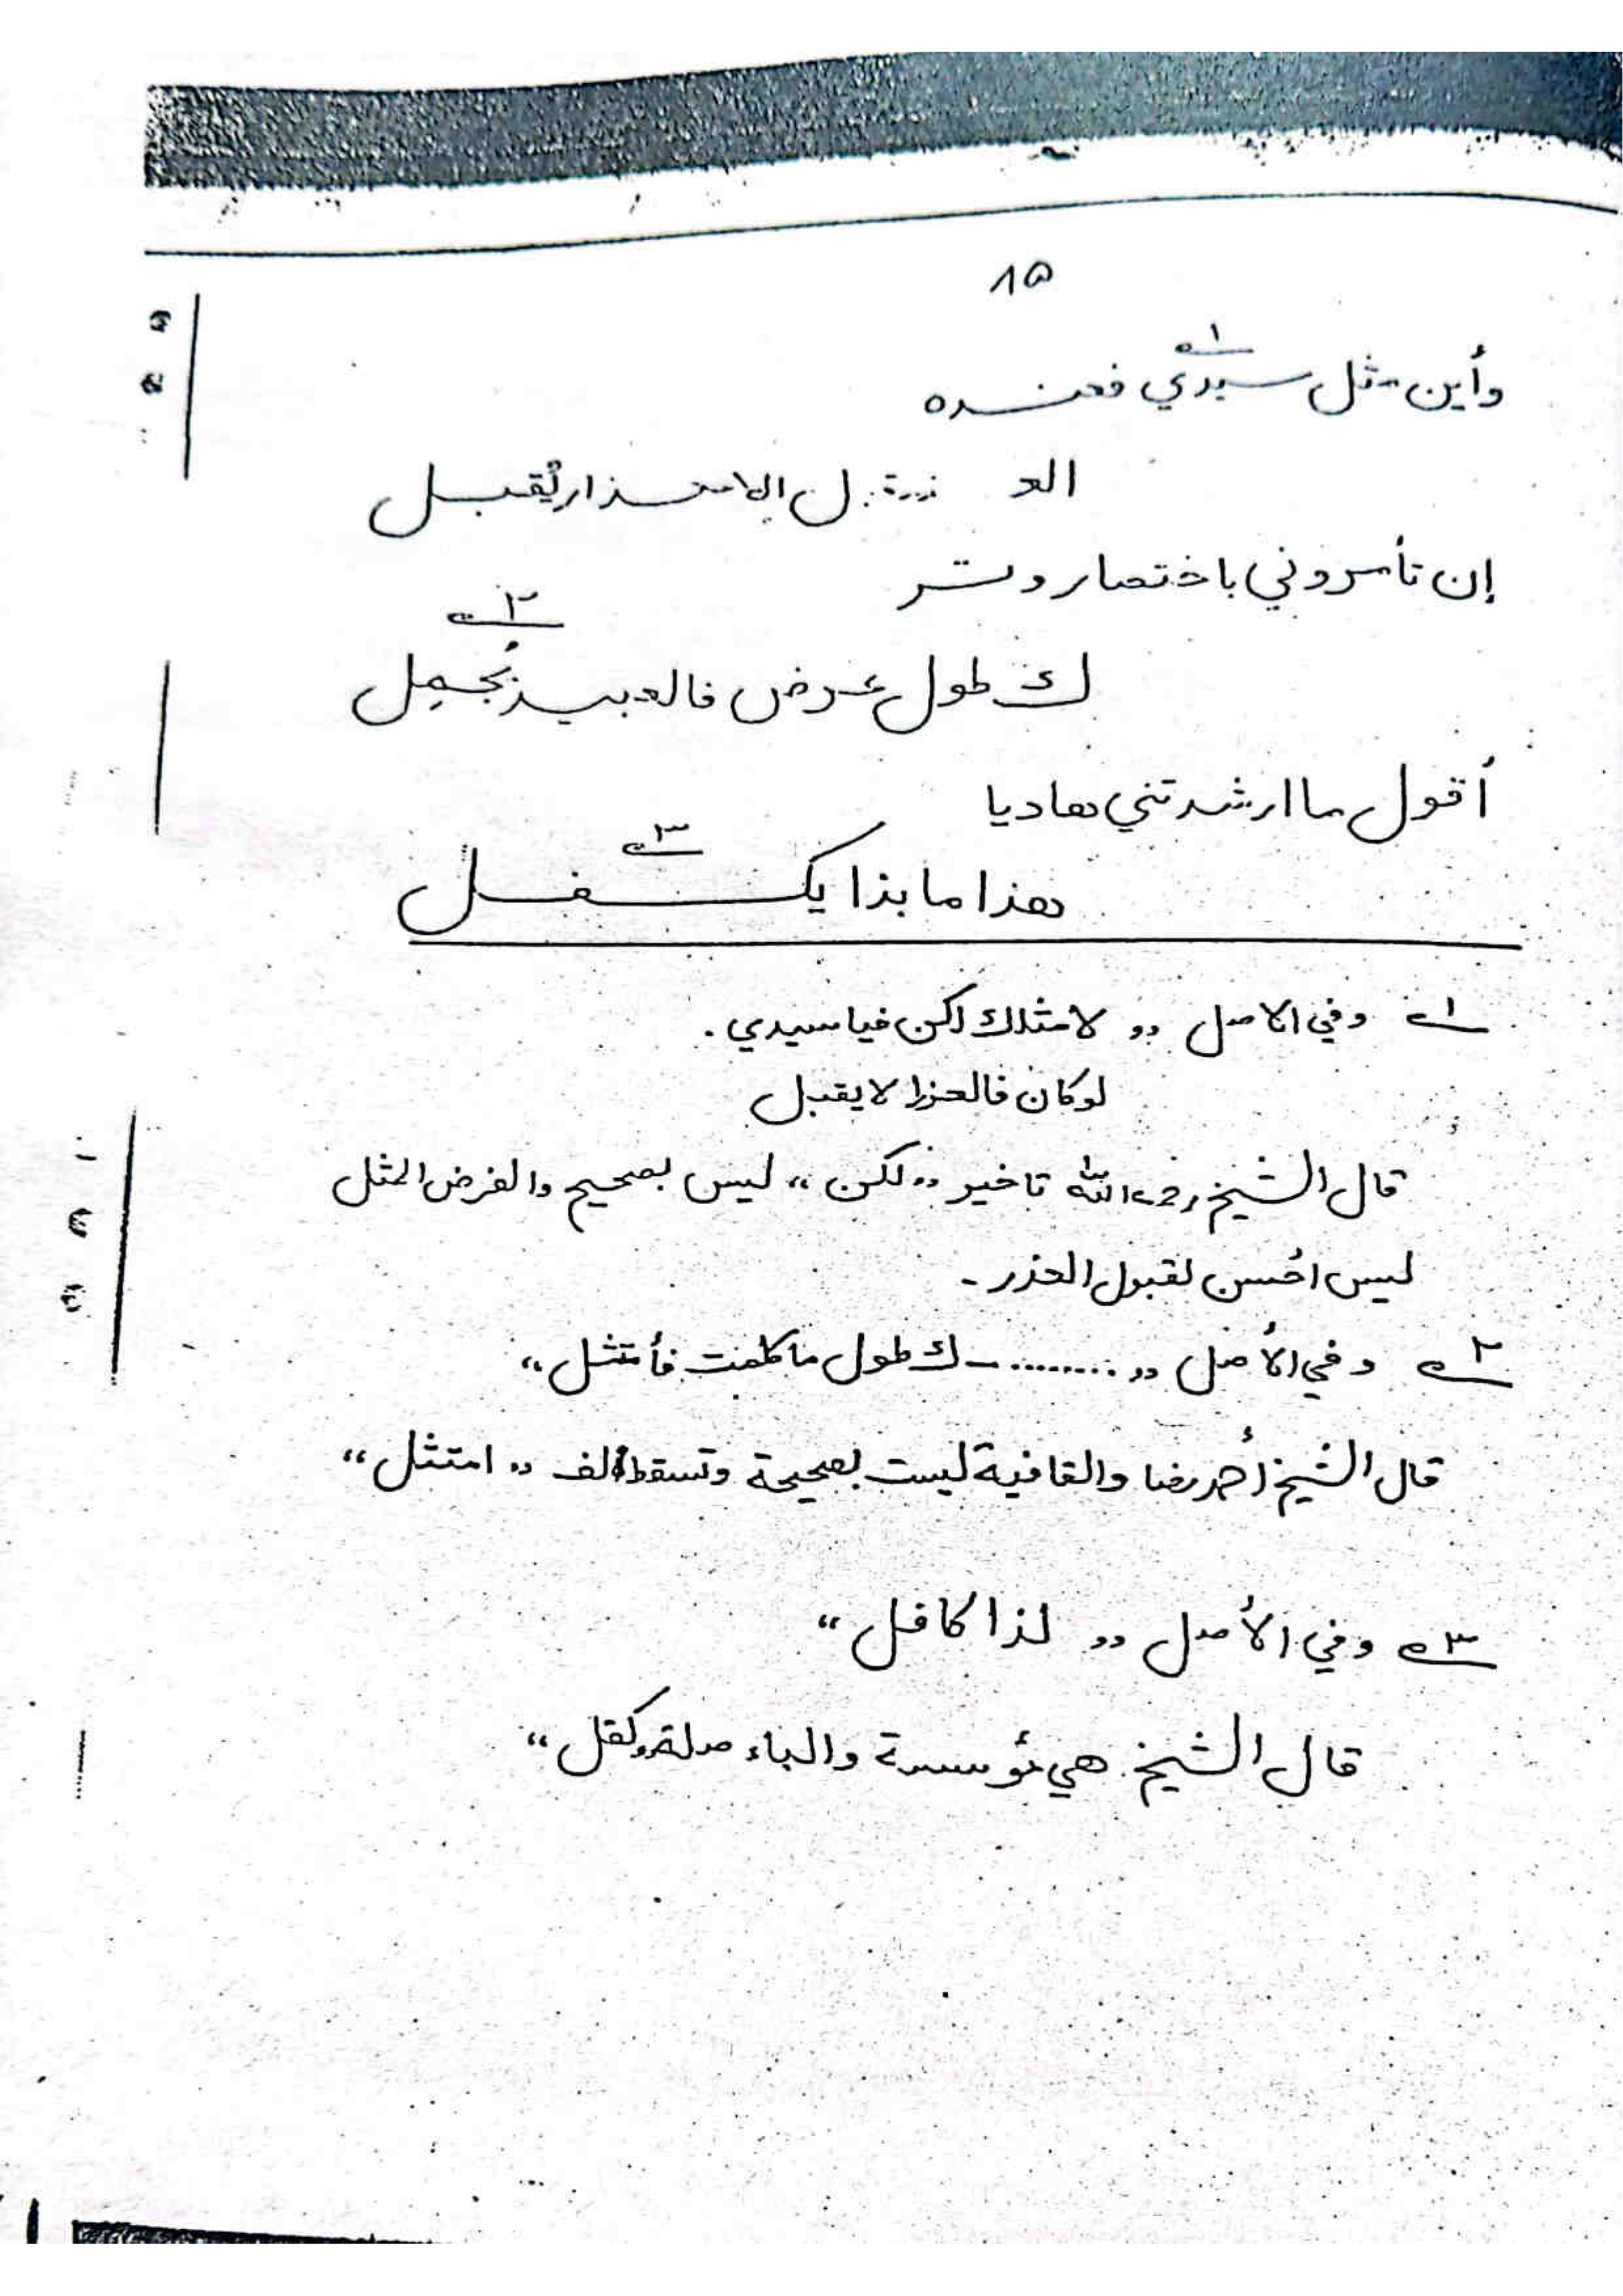 ٨٥
وأين مثل سيدي فعنده ١؎
العذر قبل الاعتذار يُقبل
إن تأمروني باختصار وتتر
ك طول عرض فالعبيد يُجمِل ٢؎
أقول ما ارشدتني هاديا
هذا ما بذا يكفل ٣؎
١؎ وفي الاصل ,, لامثلك لكن فيا سيدي .
لو كان فالعذر لا يقبل
قال الشيخ رحمه الله تاخير ,, لكن ،، ليس بصحيح والفرض المثل
ليس احسن لقبول العذر -
٢؎ وفي الأصل ,, ......... - ك طول ما كلفت فأمتثل ،،
قال الشيخ أحمد رضا والقافية ليست بصحيحة وتسقط ألف ,, امتثل ،،
٣؎ وفي الأصل ,, لذا كافل ،،
قال الشيخ هي مؤسسة والباء صلة كفل ،،